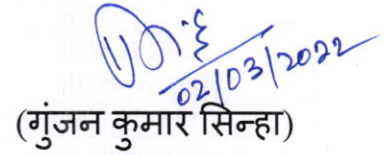 02/03/2022
(गुंजन कुमार सिन्हा)